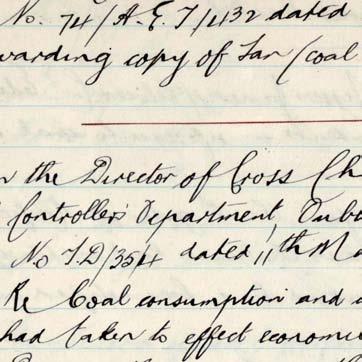 No. 74/A.E.T/432 dated
warding copy of Jan (coal
n the Director of Cross Ch
Controller's Department, Dub
No T.D/354 dated 11th Ma
Re Coal consumption and
had taken to effect economi